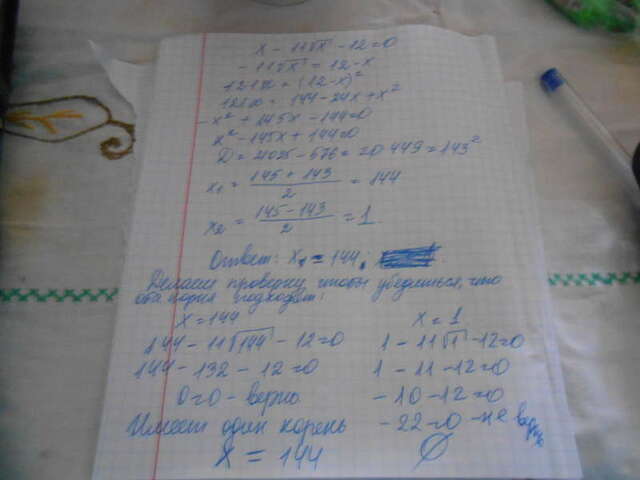 x - 11√x - 12 = 0
- 11√x = 12 - x
121x = (12 - x)²
121x = 144 - 24x + x²
- x² + 145x - 144 = 0
x² - 145x + 144 = 0
D = 21025 - 576 = 20 449 = 143²
x₁ = (145 + 143)/2 = 144
x₂ = (145 - 143)/2 = 1
Ответ: x₁ = 144;
Делаем проверку, чтобы убедиться, что
оба корня подходят:
x = 144
144 - 11√144 - 12 = 0
144 - 132 - 12 = 0
0 = 0 - верно
Имеет один корень
x = 144
x = 1
1 - 11√1 - 12 = 0
1 - 11 - 12 = 0
- 10 - 12 = 0
- 22 = 0 - не верно
∅